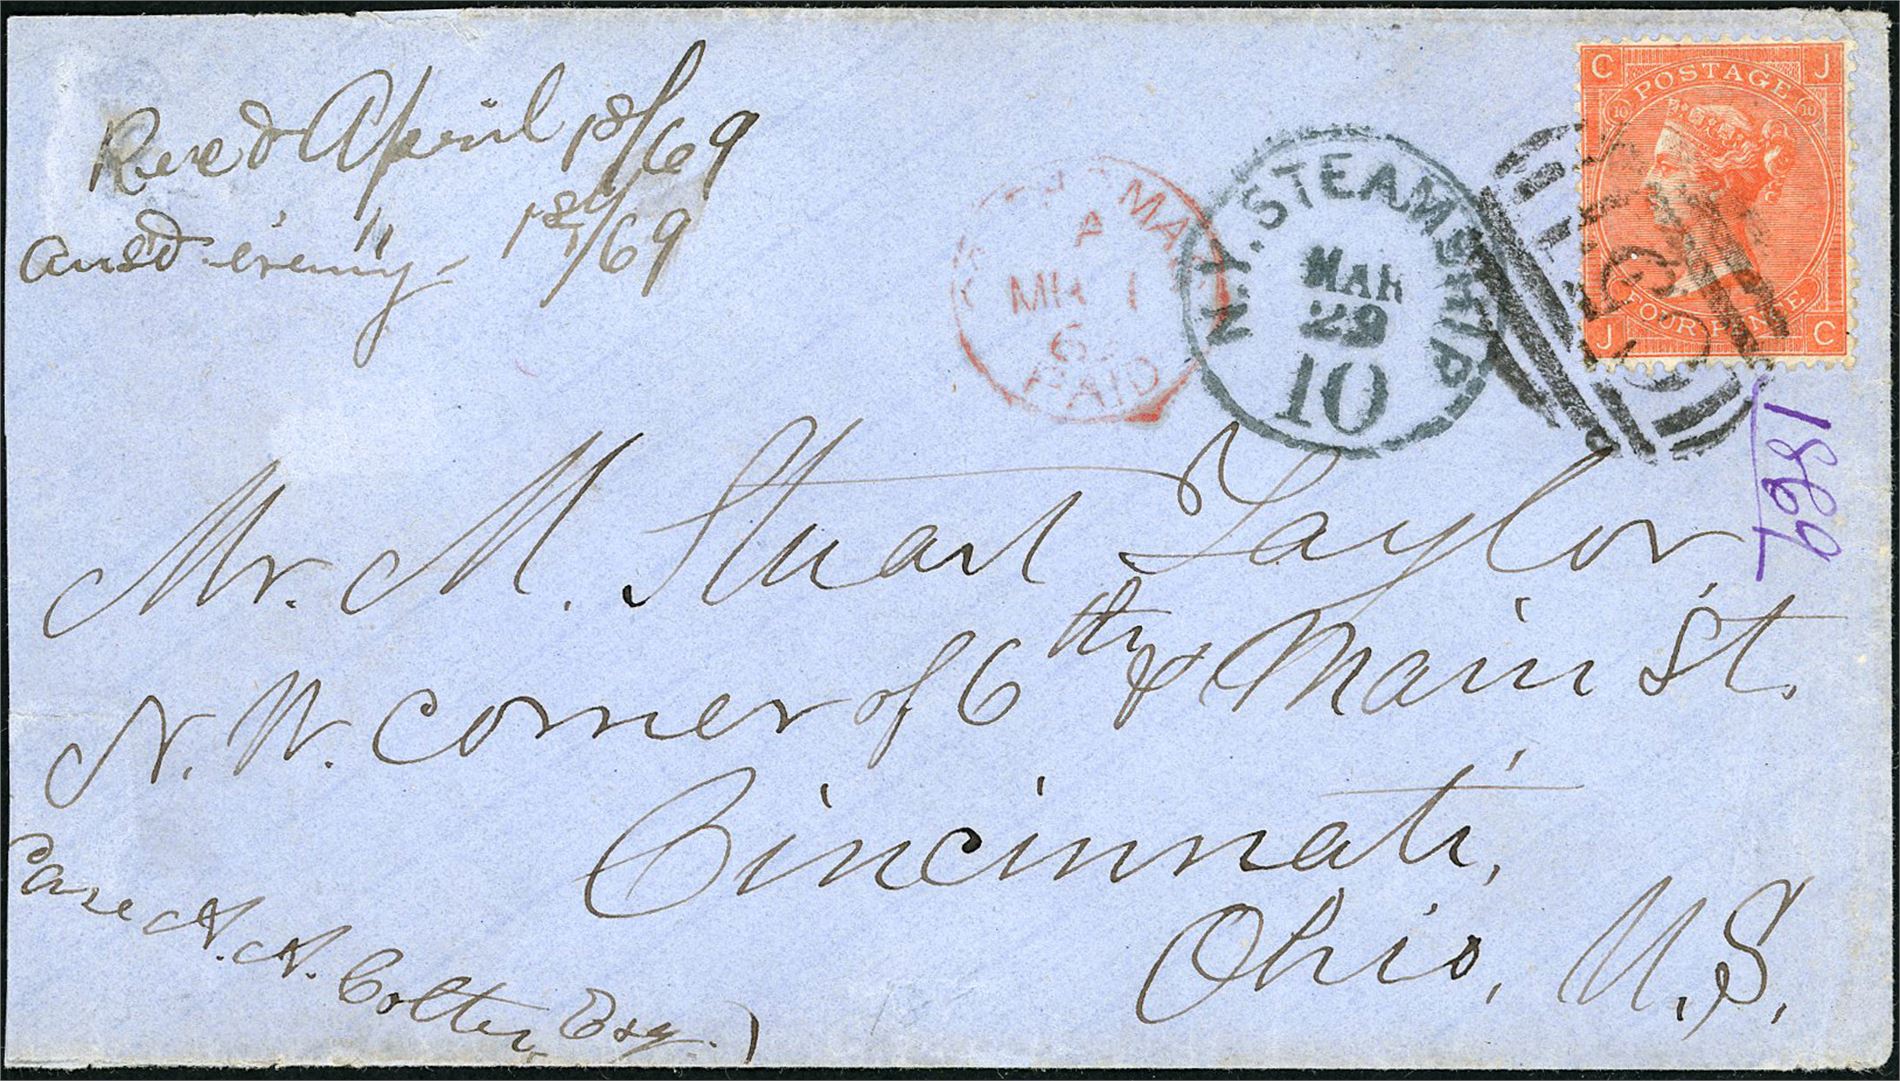 Recd April 1st/69
Ansd evening " 1st/69
MAR
A
MR 1
6
PAID
N.Y. STEAMSHIP
MAR
29
10
C J
POSTAGE
10 10
FOUR PENCE
J C
1869
Mr. M. Stuart Taylor,
N. W. Corner of 6th & Main St.
Cincinnati,
Ohio, U.S.
Care N. N. Colter, Esq.)